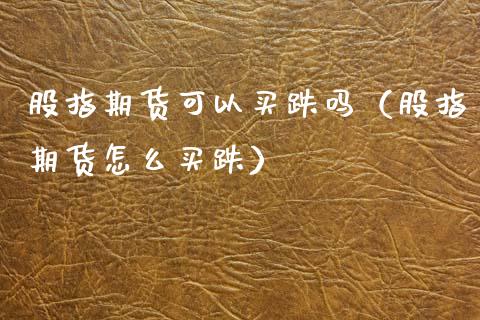 股指期货可以买跌吗（股指
期货怎么买跌）